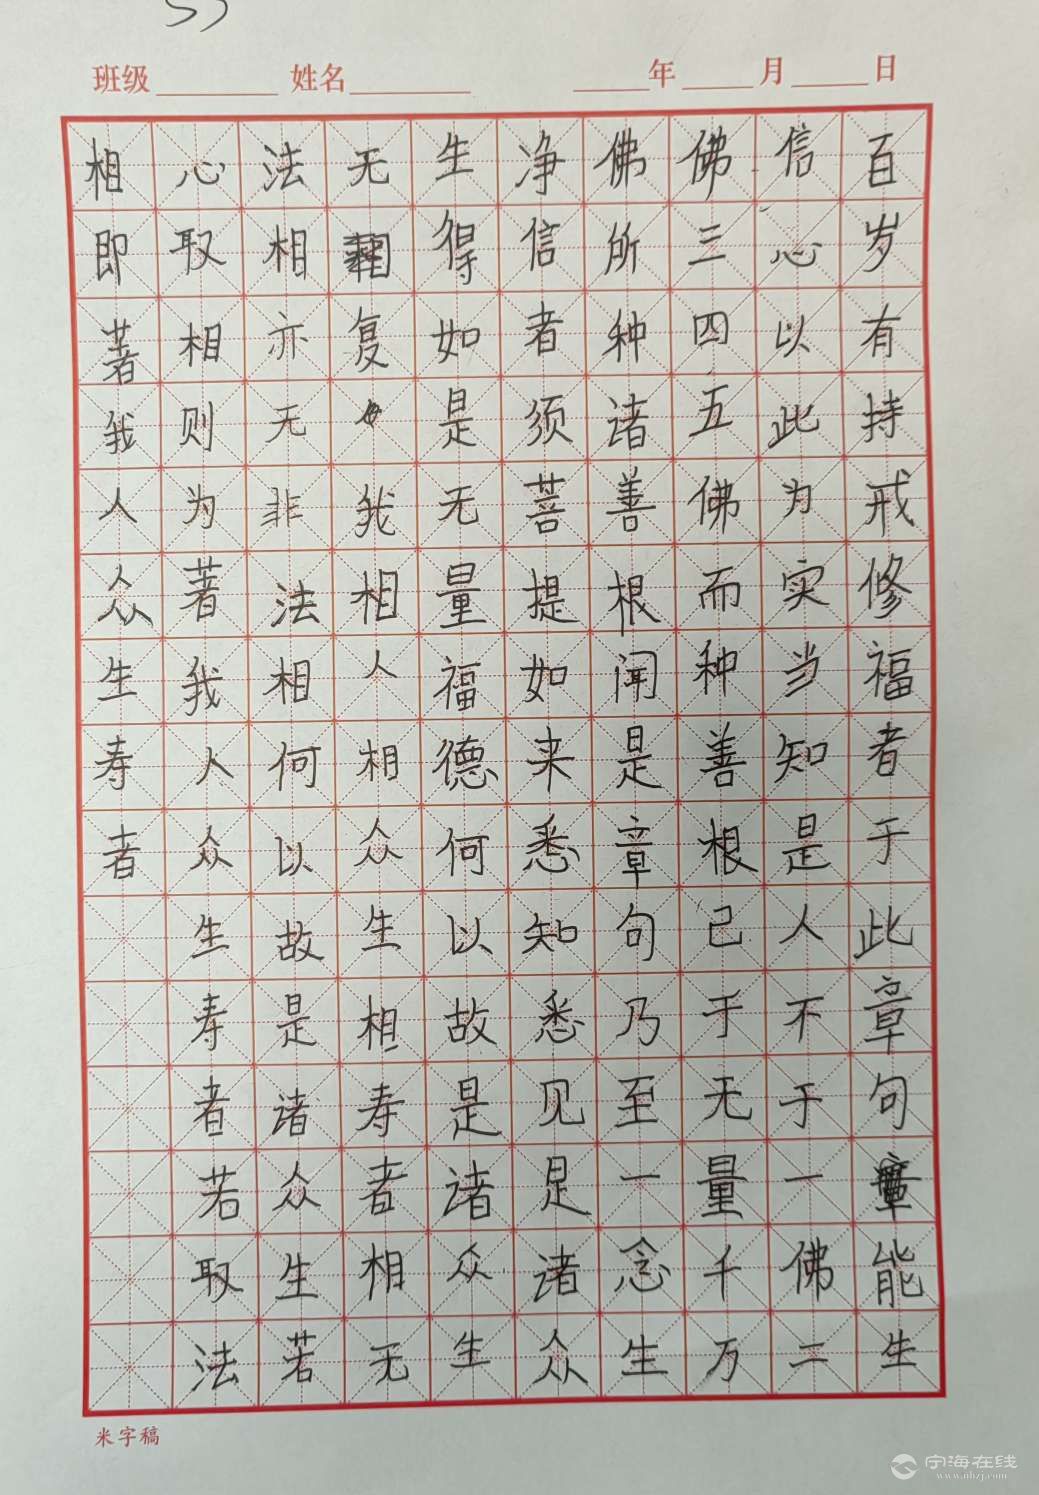 班级 姓名 年 月 日
百岁有持戒修福者于此章句能生
信心以此为实当知是人不于一佛二
佛三四五佛而种善根己于无量千万
佛所种诸善根闻是章句乃至一念生
净信者须菩提如来悉知悉见是诸众
生得如是无量福德何以故是诸众生
无复我相人相众生相寿者相无
法相亦无非法相何以故是诸众生若
心取相则为著我人众生寿者若取法
相即著我人众生寿者
米字稿
宁海在线
www.nhzj.com